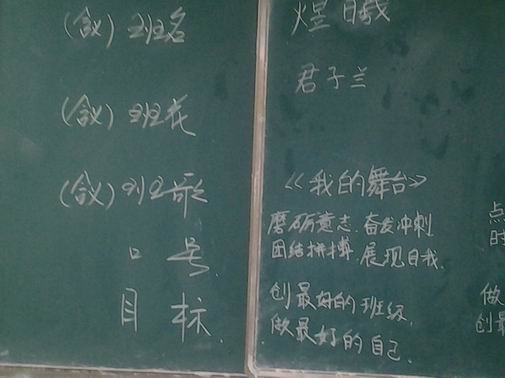 班名
班花
班歌
口号
目标
君子兰
《我的舞台》
磨砺意志.奋发冲刺
团结拼搏.展现自我.
创最好的班级.
做最好的自己.
点
时
做
创最